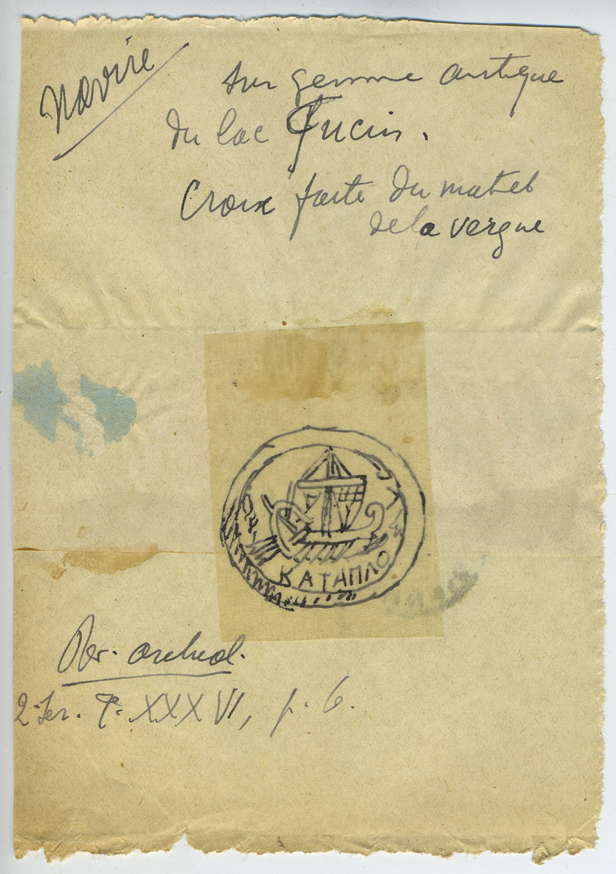 Navire
sur gemme antique
du lac Fucin.
Croix faite du mat et
de la vergue
ΚΑΤΑΠΛΟ
Rev. archeol.
2 Ser. T. XXXVI, p. 6.